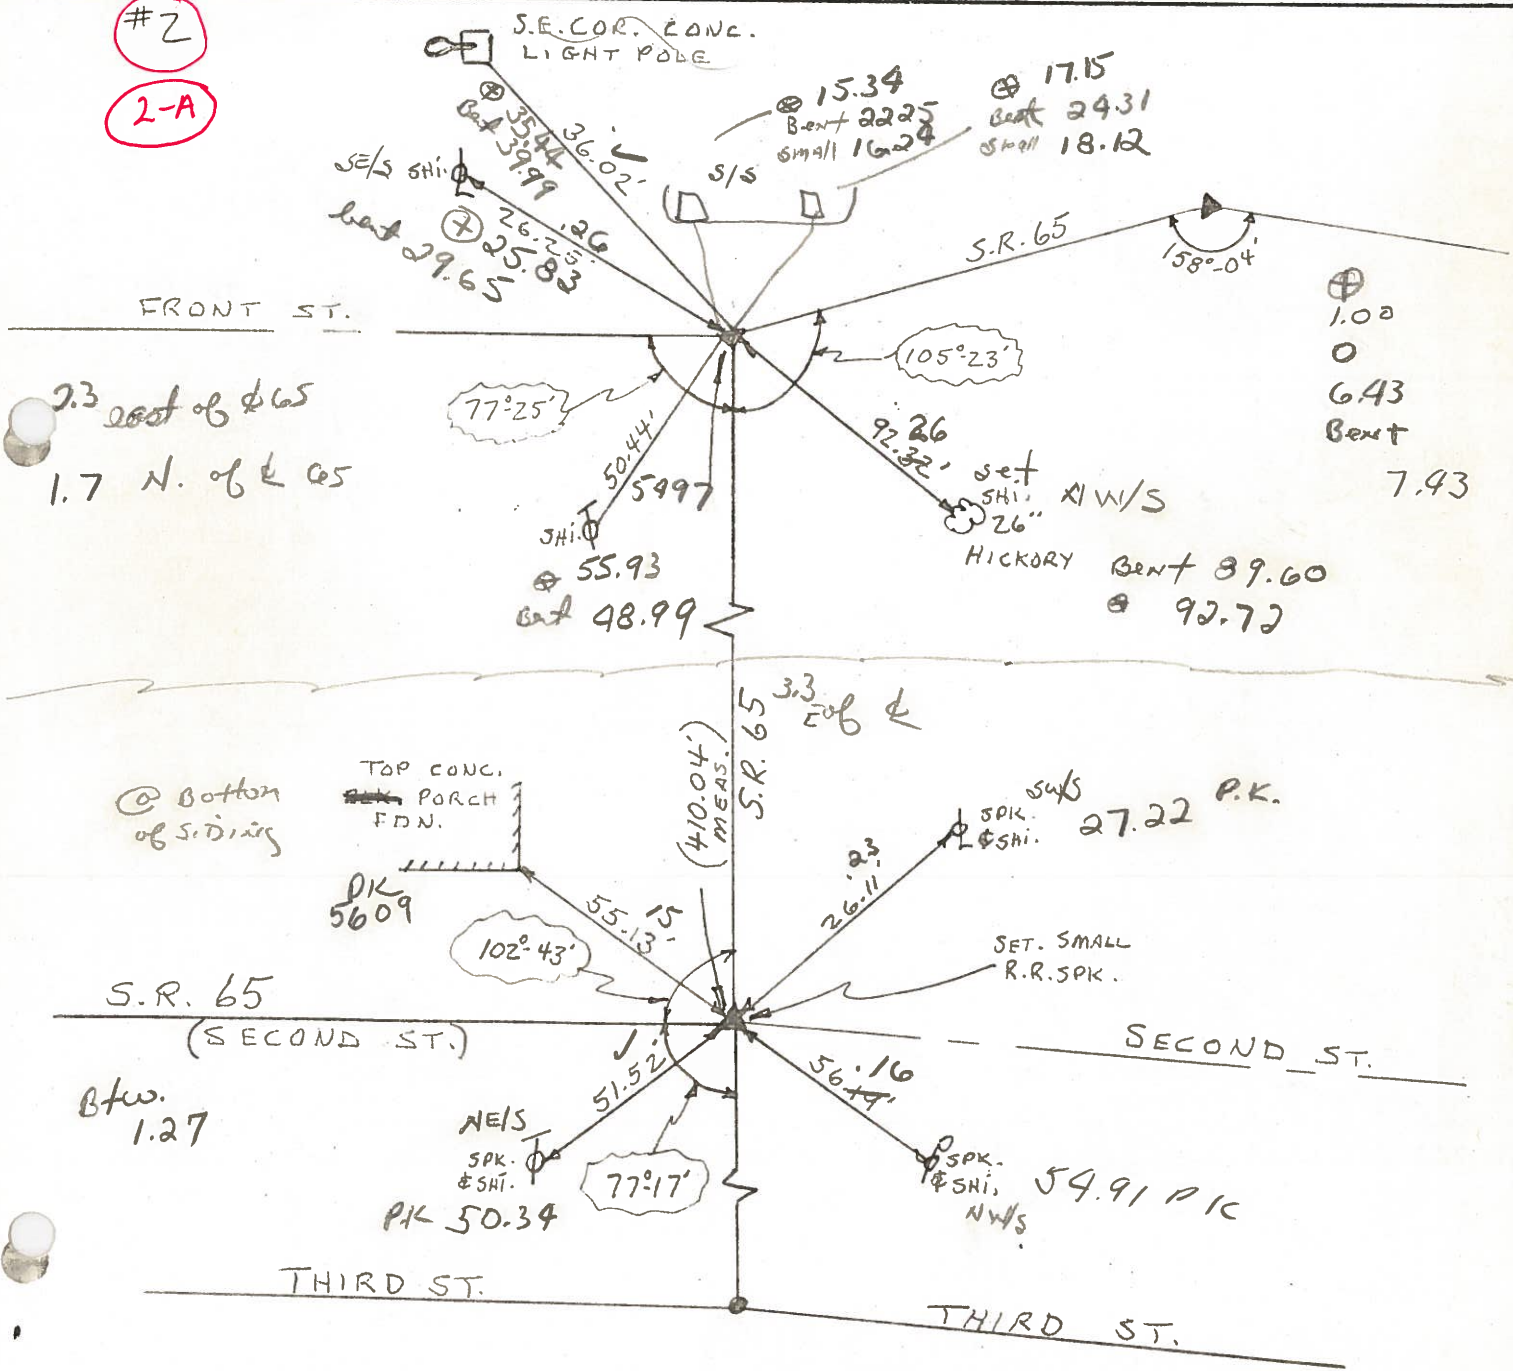 #2
2-A
S.E. COR. CONC.
LIGHT POLE
⊗ 35.44
Bent 39.99
36.02' ✓
⊗ 15.34
Bent 22.25
Small 16.24
⊕ 17.15
Bent 24.31
Small 18.12
S/S
SE/S SHI.
26.25' .26
⊗ 25.83
bent 29.65
S.R. 65
158°-04'
⊕
1.00
0
6.43
Bent
7.43
FRONT ST.
105°-23'
77°-25'
2.3 east of ℄ 65
1.7 N. of ℄ 65
50.44'
5497
SHI.
⊕ 55.93
Bent 48.99
92.32' 26
set
SHI. N W/S
26"
HICKORY
Bent 89.60
⊕ 92.72
3.3 E of ℄
S.R. 65
(410.04' MEAS.)
@ Bottom
of Siding
TOP CONC.
PORCH
FDN.
PK
5609
55.13' 15
SW/S
SPK.
& SHI.
27.22 P.K.
26.11' .23
102°-43'
SET. SMALL
R.R. SPK.
S.R. 65
(SECOND ST.)
SECOND ST.
Btw.
1.27
51.52' ✓
NE/S
SPK.
& SHI.
PK 50.34
77°-17'
56.19' .16
SPK.
& SHI.
NW/S
54.91 PK
THIRD ST.
THIRD ST.